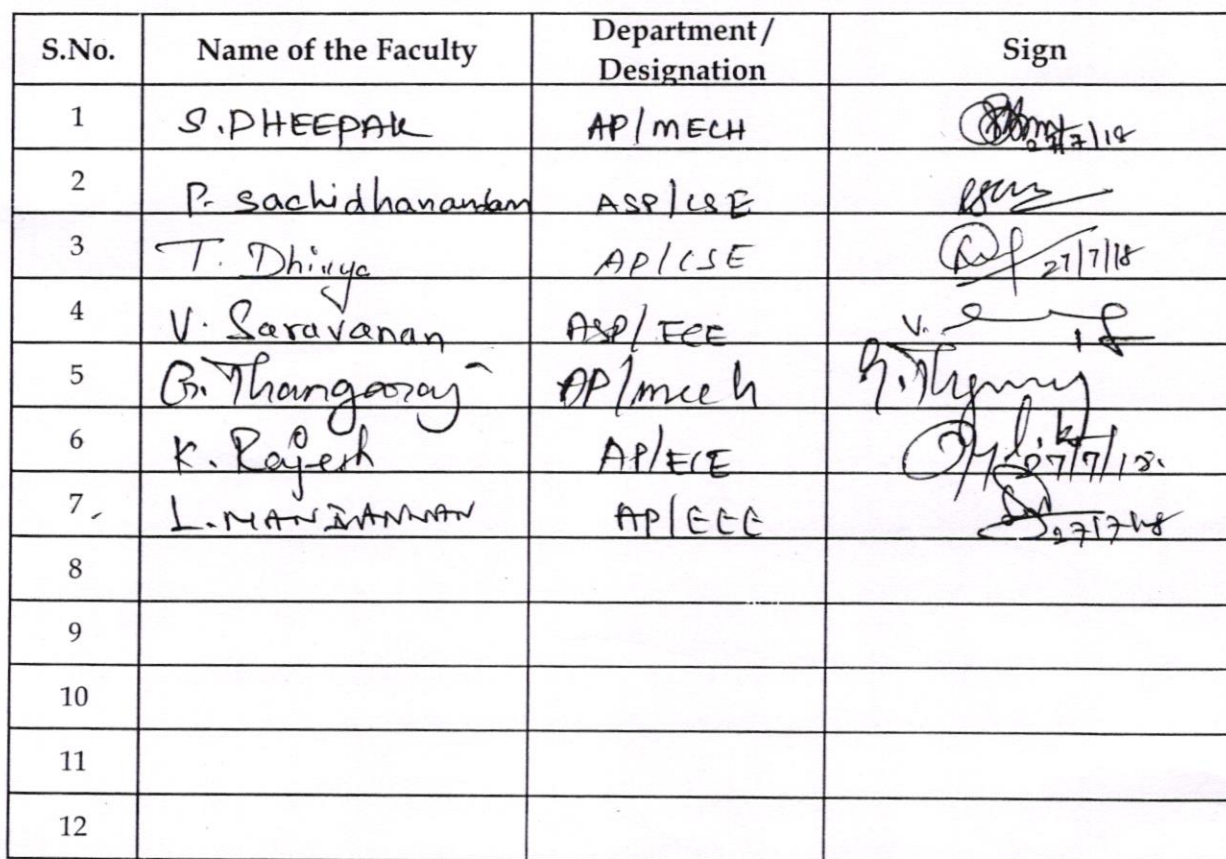 S.No. Name of the Faculty Department/ Designation Sign
1 S.DHEEPAK AP/MECH 27/7/18
2 P. Sachidhanandam ASP/CSE
3 T. Dhivya AP/CSE 27/7/18
4 V. Saravanan ASP/ECE V.
5 G. Thangaraj AP/mech G.
6 K. Rajesh AP/ECE 27/7/18.
7 L.MANIVANNAN AP/EEE 27/7/18
8
9
10
11
12